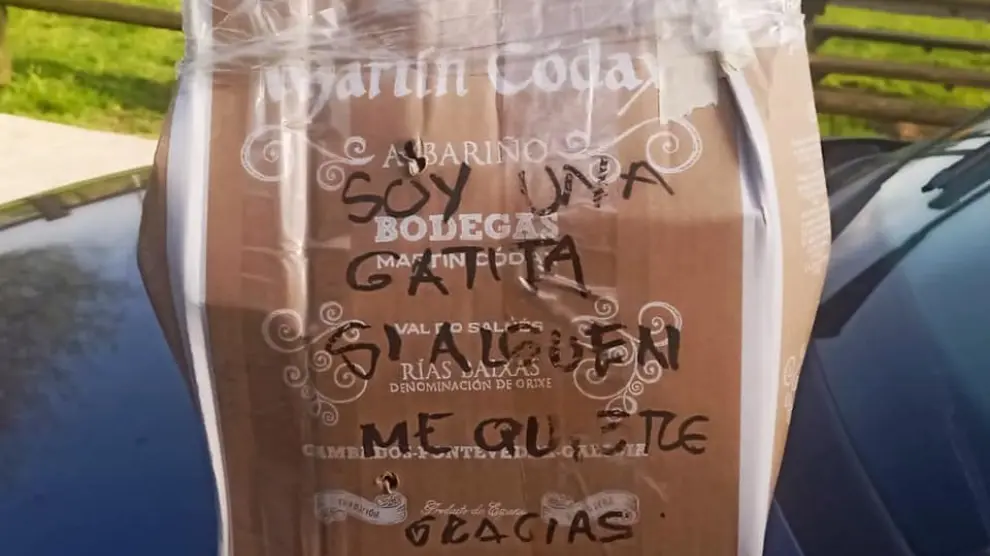 Martín Códax
ALBARIÑO
SOY UNA
BODEGAS
MARTÍN CÓDAX
GATITA
VAL DO SALNÉS
SI ALGUEN
RÍAS BAIXAS
DENOMINACIÓN DE ORIXE
ME QUIERE
CAMBADOS-PONTEVEDRA-GALICIA
TRADICIÓN
Producto de España
GRACIAS